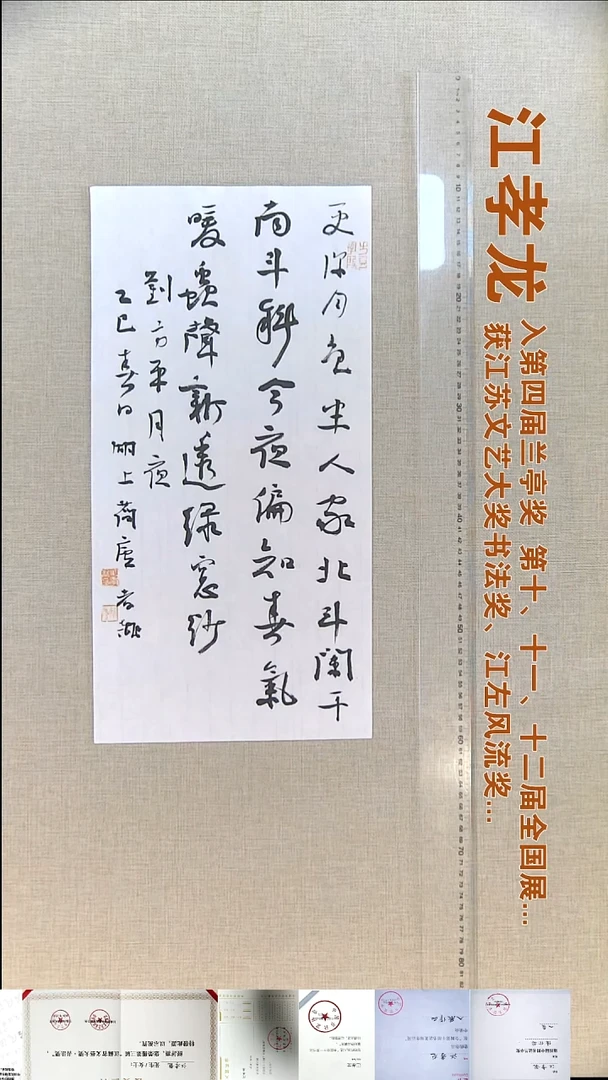 江孝龙
入第四届兰亭奖 第十、十一、十二届全国展...
获江苏文艺大奖书法奖、江左风流奖...
更深月色半人家北斗闌干
南斗斜今夜偏知春氣
暖蟲聲新透綠窓紗
劉方平月夜
乙巳春日湖上